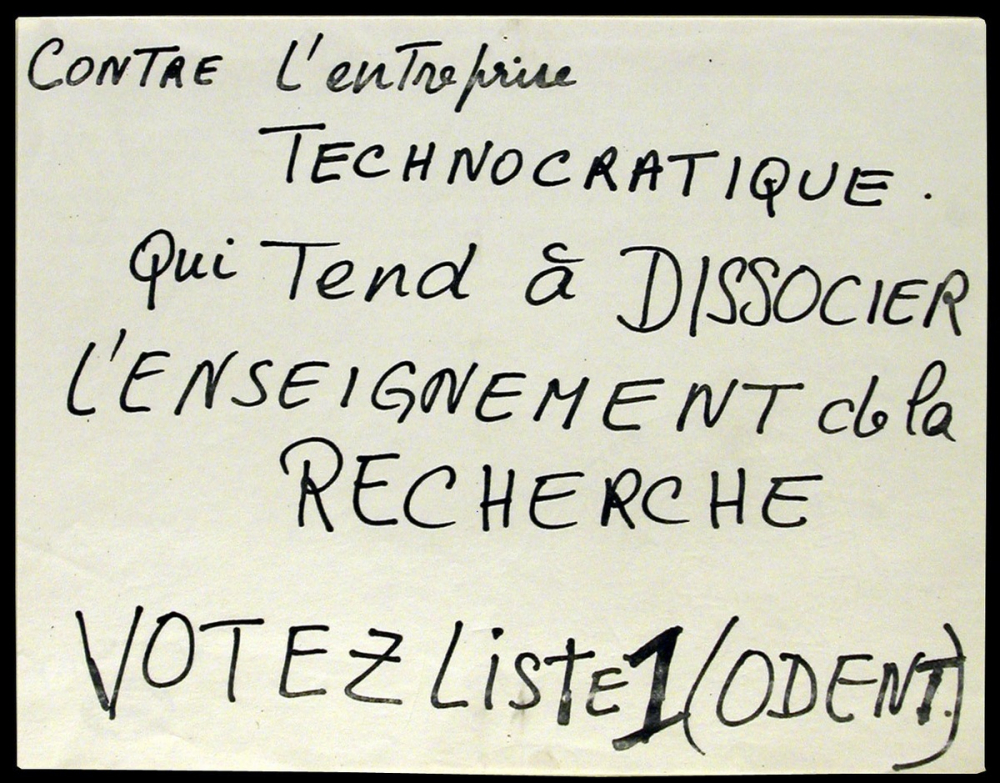 CONTRE L'entreprise
TECHNOCRATIQUE.
Qui Tend à DISSOCIER
L'ENSEIGNEMENT de la
RECHERCHE
VOTEZ Liste 1 (ODENT.)